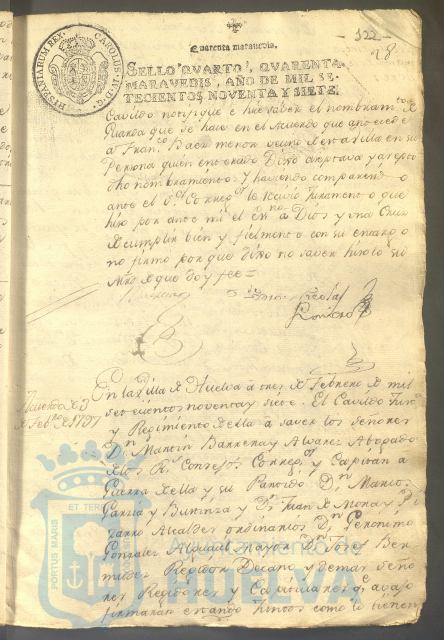 122
28
Quarenta maravedis.
SELLO QVARTO, QVARENTA
MARAVEDIS, AÑO DE MIL SE-
TECIENTOS NOVENTA Y SIETE.
HISPANIARUM REX CAROLUS IV D G
Cavildo notifique e hise saver el nombram.to
Guarda que se hace en el Acuerdo que antecede
a Fran.co Baez menor vecino de esta villa en su
Persona quien enterado Dixo aceptava y acepto
dho nombramiento y haviendo comparecido
ante el S.r Correg.or le recivio Juramento que
hizo por ante mi el Es.no a Dios y una Cruz
de cumplir bien y fielmente con su encargo
no firmo por que dixo no saver hisolo su
Mrd de que doy fee=
Acuerdo de 3
de Feb.ro de 1797
En la Villa de Huelva a tres de Febrero de mil
setecientos noventa y siete. El Cavildo Just.a
y Regimiento de ella a saver los señores
D.n Martin Barrera y Alvarez Abogado
de los R.s Consejos Correg.or y Capitan a
Guerra de ella y su Partido D.n Marco
Garzia y D.n Juan de Mora y Pi
zarro Alcaldes ordinarios D.n Geronimo
Gonzalez Alguacil mayor D.n Josef Ber
mudez Regidor Decano y demas seño
res Regidores y Capitulares q.e avajo
firmaran estando Juntos como lo tienen
PORTUS MARIS ET TERRAE
Ayuntamiento de
HUELVA